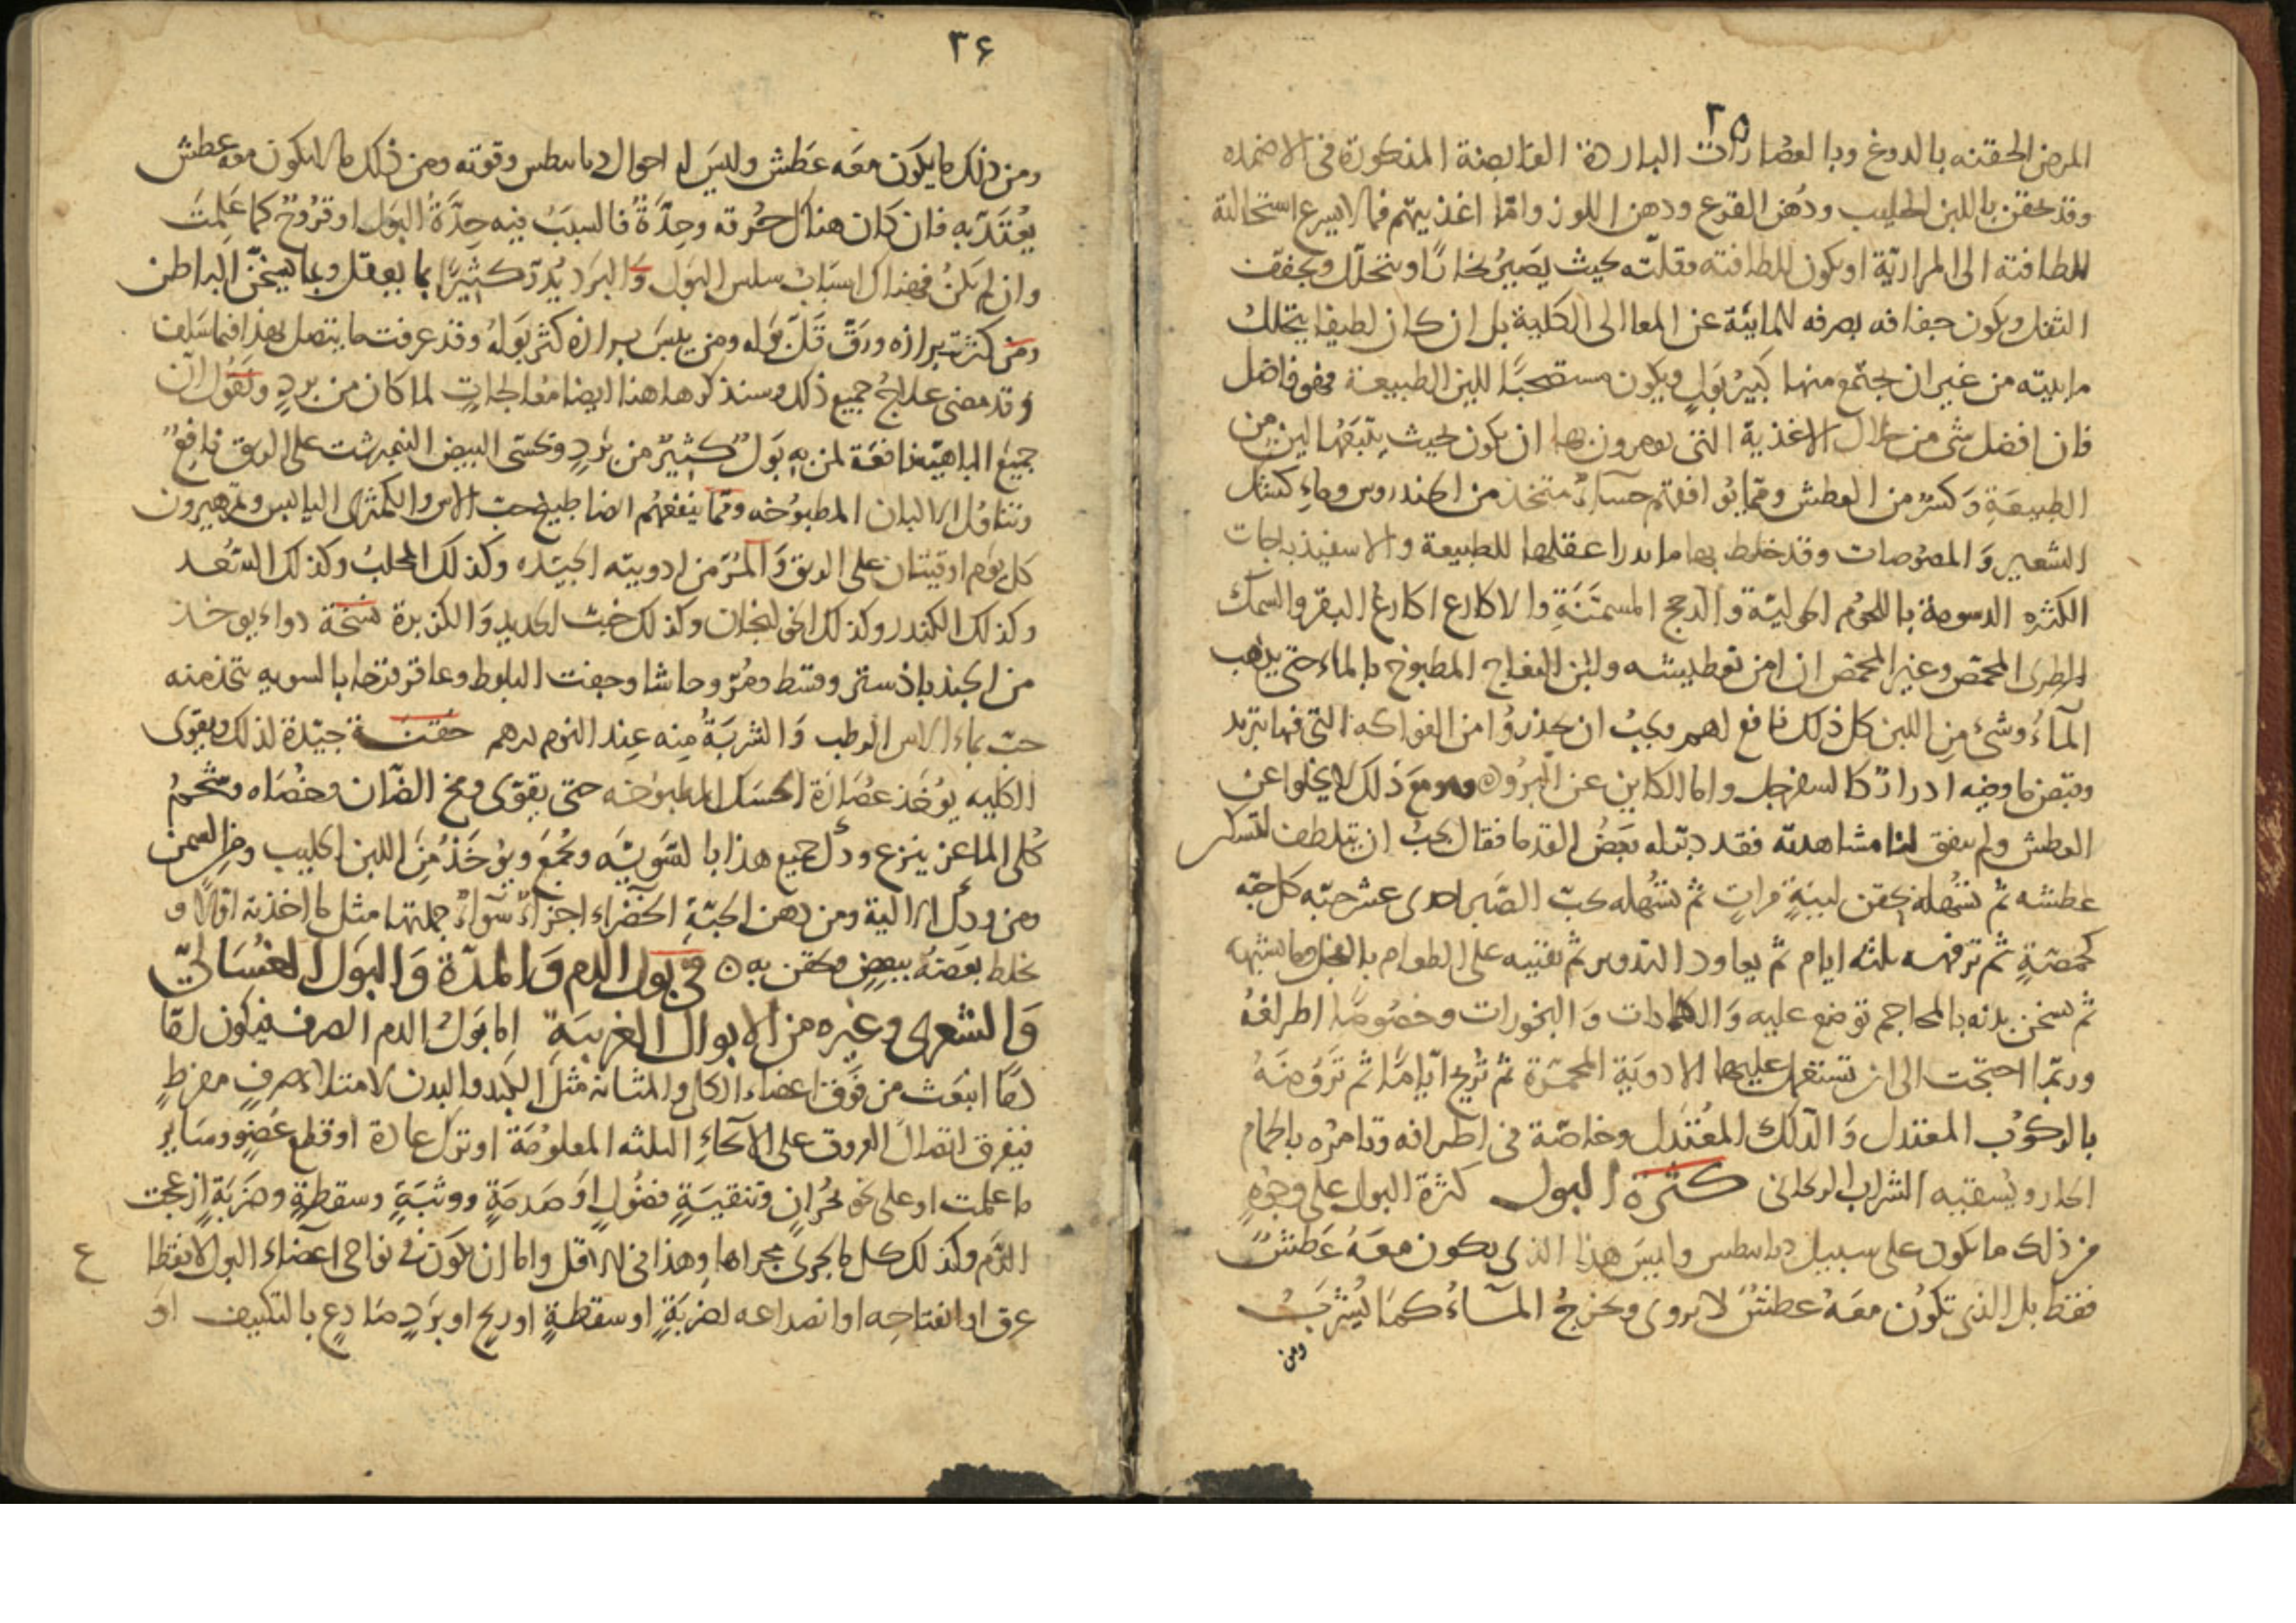 ٢٥
المرض الحقنه بالدوغ وبالعصارات الباردة القابضة المذكورة فى الاضمده
وقد يحقن باللبن الحليب ودهن القرع ودهن اللوز وامّا اغذيتهم فما لا يسرع استحالته
للطافته الى المرارية او يكون للطافته وقلّته بحيث يصير بخارًا ويتحلّل ويجفف
الثفل ويكون جفافه بصرفه للمائية عن المعا الى الكلية بل ان كان لطيفا يتحلل
مايته من غير ان يجتمع منها كبير بول ويكون مستصحبًا للين الطبيعة فهو فاضل
فان افضل شى من خلال الاغذية التى يومرون بها ان يكون بحيث يتبعها لين من
الطبيعة وكسرٌ من العطش ومما يوافقهم حساءٌ متخذ من الخندروس وماء كشك
الشعير والمصوصات وقد خلط بها ما يدر اعقلها للطبيعة والاسفيذباجات
الكثره الدسومة باللحوم الحوليّة والدجج المسمّنة والاكارع اكارع البقر والسمك
الطرى المحمّض وغير المحمض ان امن تعطيشه ولبن النعاج المطبوخ بالماء حتى يذهب
المآء وشىء من اللبن كل ذلك نافع لهم ويجب ان يحذروا من الفواكه التى فيها تبريد
وقبض ما وفيه ادرارٌ كالسفرجل واما الكاين عن البرود ومع ذلك لا يخلوا عن
العطش ولم يتفق لنا مشاهدته فقد دبّله بعض القدما فقال يجب ان يتلطف لتسكر
عطشه ثم تسهله بحقن لينةٍ مراتٍ ثم تسهله بحبّ الصّبر احدى عشر حبّه كل حبّه
كحمّصةٍ ثم ترفهه ثلثه ايام ثم يعاود التدوير ثم تقنيه على الطعام بالفجل وما يشبهه
ثم يسخن بدنه بالمحاجم توضع عليه والكمادات والبخورات وخصوصًا اطرافهُ
وربّما احتجت الى ان تستعمل عليها الادوية المحمّرة ثم تريح ايّامًا ثم تروّضهُ
بالركوب المعتدل والدلك المعتدل وخاصّة فى اطرافه وتامره بالحمام
الحار ويسقيه الشراب الريحانى كثرة البول كثرة البول على وجوهٍ
من ذلك ما يكون على سبيل ديابيطس وليس هذا الذى يكون معه عطشٌ
فقط بل الذى تكون معه عطشٌ لا يروى ويخرج المآء كما يُشربُ
ومن
٣۶
ومن ذلك ما يكون معه عطش وليس له احوال ديابيطس وقوته ومن ذلك ما لا يكون معه عطش
يعتدّ به فان كان هناك حرقه وحدّةٌ فالسبب فيه حدّة البول او قروحٌ كما علمت
وان لم يكن فهناك اسباب سلس البول والبرد يدرّ كثيرًا بما يعقل وبما يسخّن الباطن
ومن كثر برازه ورقّ قلّ بوله ومن يبس برازه كثر بوله وقد عرفت ما يتصل بهذا فيما سلف
وقد مضى علاج جميع ذلك وسنذكر هاهنا ايضا معالجاتٍ لما كان من بردٍ ونقول ان
جميع الباهيّه نافعة لمن به بولٌ كثيرٌ من بردٍ وتحسّى البيض النيمبرشت على الريق نافعٌ
وتناول الالبان المطبوخه ومما ينفعهم ايضا طبيخ حبّ الاس والكمثرى اليابس وتمرهيرون
كل يوم اوقيتان على الريق والمرّ من ادويته الجيّده وكذلك المحلب وكذلك السّعد
وكذلك الكندر وكذلك الخولنجان وكذلك خبث الحديد والكزبرة نسخة دواء يوخذ
من الجندبادستر وقسط ومرّ وحاشا وجفت البلوط وعاقرقرحا بالسويه تتخذ منه
حبّ بماء الاس الرطب والشربةُ منه عند النوم درهم حقنة جيّدة لذلك ويقوى
الكليه يوخذ عصارة الحسك المطبوخه حتى يقوى ومخ الضان وخصاه وشحم
كلى الماعز ينزع ودك جميع هذا بالسّويّه ويجمع ويوخذ من اللبن الحليب ومن السمن
ومن ودك الالية ومن دهن الحبّة الخضراء اجزاءٌ سوآءٌ جملتها مثل ما اخذته اوّلا و
يخلط بعضه ببعضٍ ويحقن به ٥ فى بول الدم والمدّة والبول الغسالىّ
والشعرى وغيره من الابوال الغريبة اما بول الدم الصرف فيكون امّا
دمًا انبعث من فوق اعضاء الكلى والمثانة مثل الكبد والبدن لامتلاء صرفٍ مفرطٍ
فيفرق اتصال العروق على الانحاء الثلثه المعلومة او ترك عادة او قطع عضوٍ وساير
ما علمت او على نحو بحرانٍ وتنقيةٍ فضولٍ او صدمةٍ ووثبةٍ وسقطةٍ وضربةٍ ازعجت
الدّم وكذلك كل ما يجرى مجراها وهذا فى الاقل واما ان يكون فى نواحى اعضاء البول لانقطا
ع
عرق او انفتاحه او انصداعه لضربةٍ او سقطةٍ او ريح او بردٍ صادعٍ بالتكثيف او